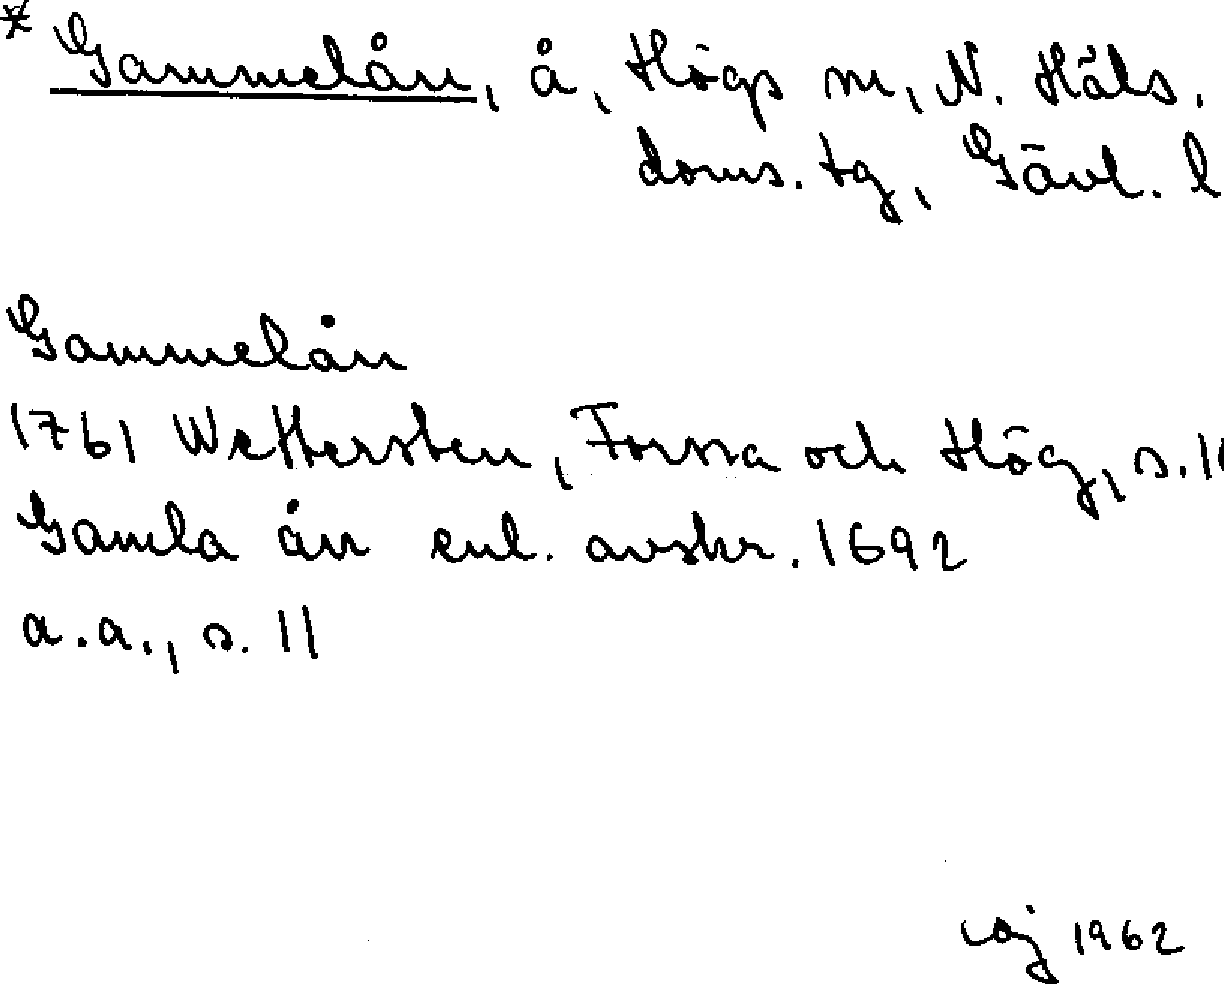 * Gammelån, å, Högs sn, N. Häls.
doms. tg, Gävl. l
Gammelån
1761 Wettersten, Forssa och Hög, s. 11
Gamla ån enl. avskr. 1692
a.a., s. 11
1962